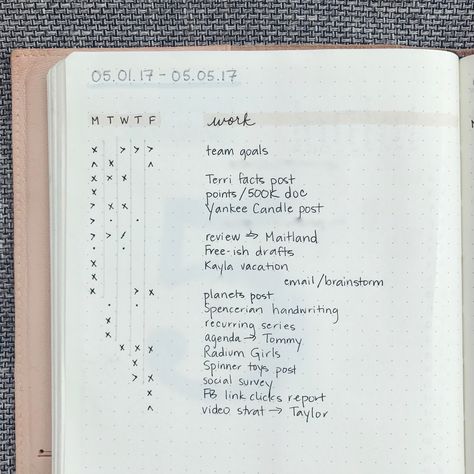 05.01.17 - 05.05.17
M T W T F work
x > > > team goals
^ x ^
x x x Terri facts post
x points/500K doc
> x x Yankee Candle post
> · ·
> > / review → Maitland
· · Free-ish drafts
x Kayla vacation
x email/brainstorm
x > x planets post
· · Spencerian handwriting
x recurring series
x agenda → Tommy
x x x Radium Girls
x Spinner toys post
> x social survey
x FB link clicks report
^ video strat → Taylor